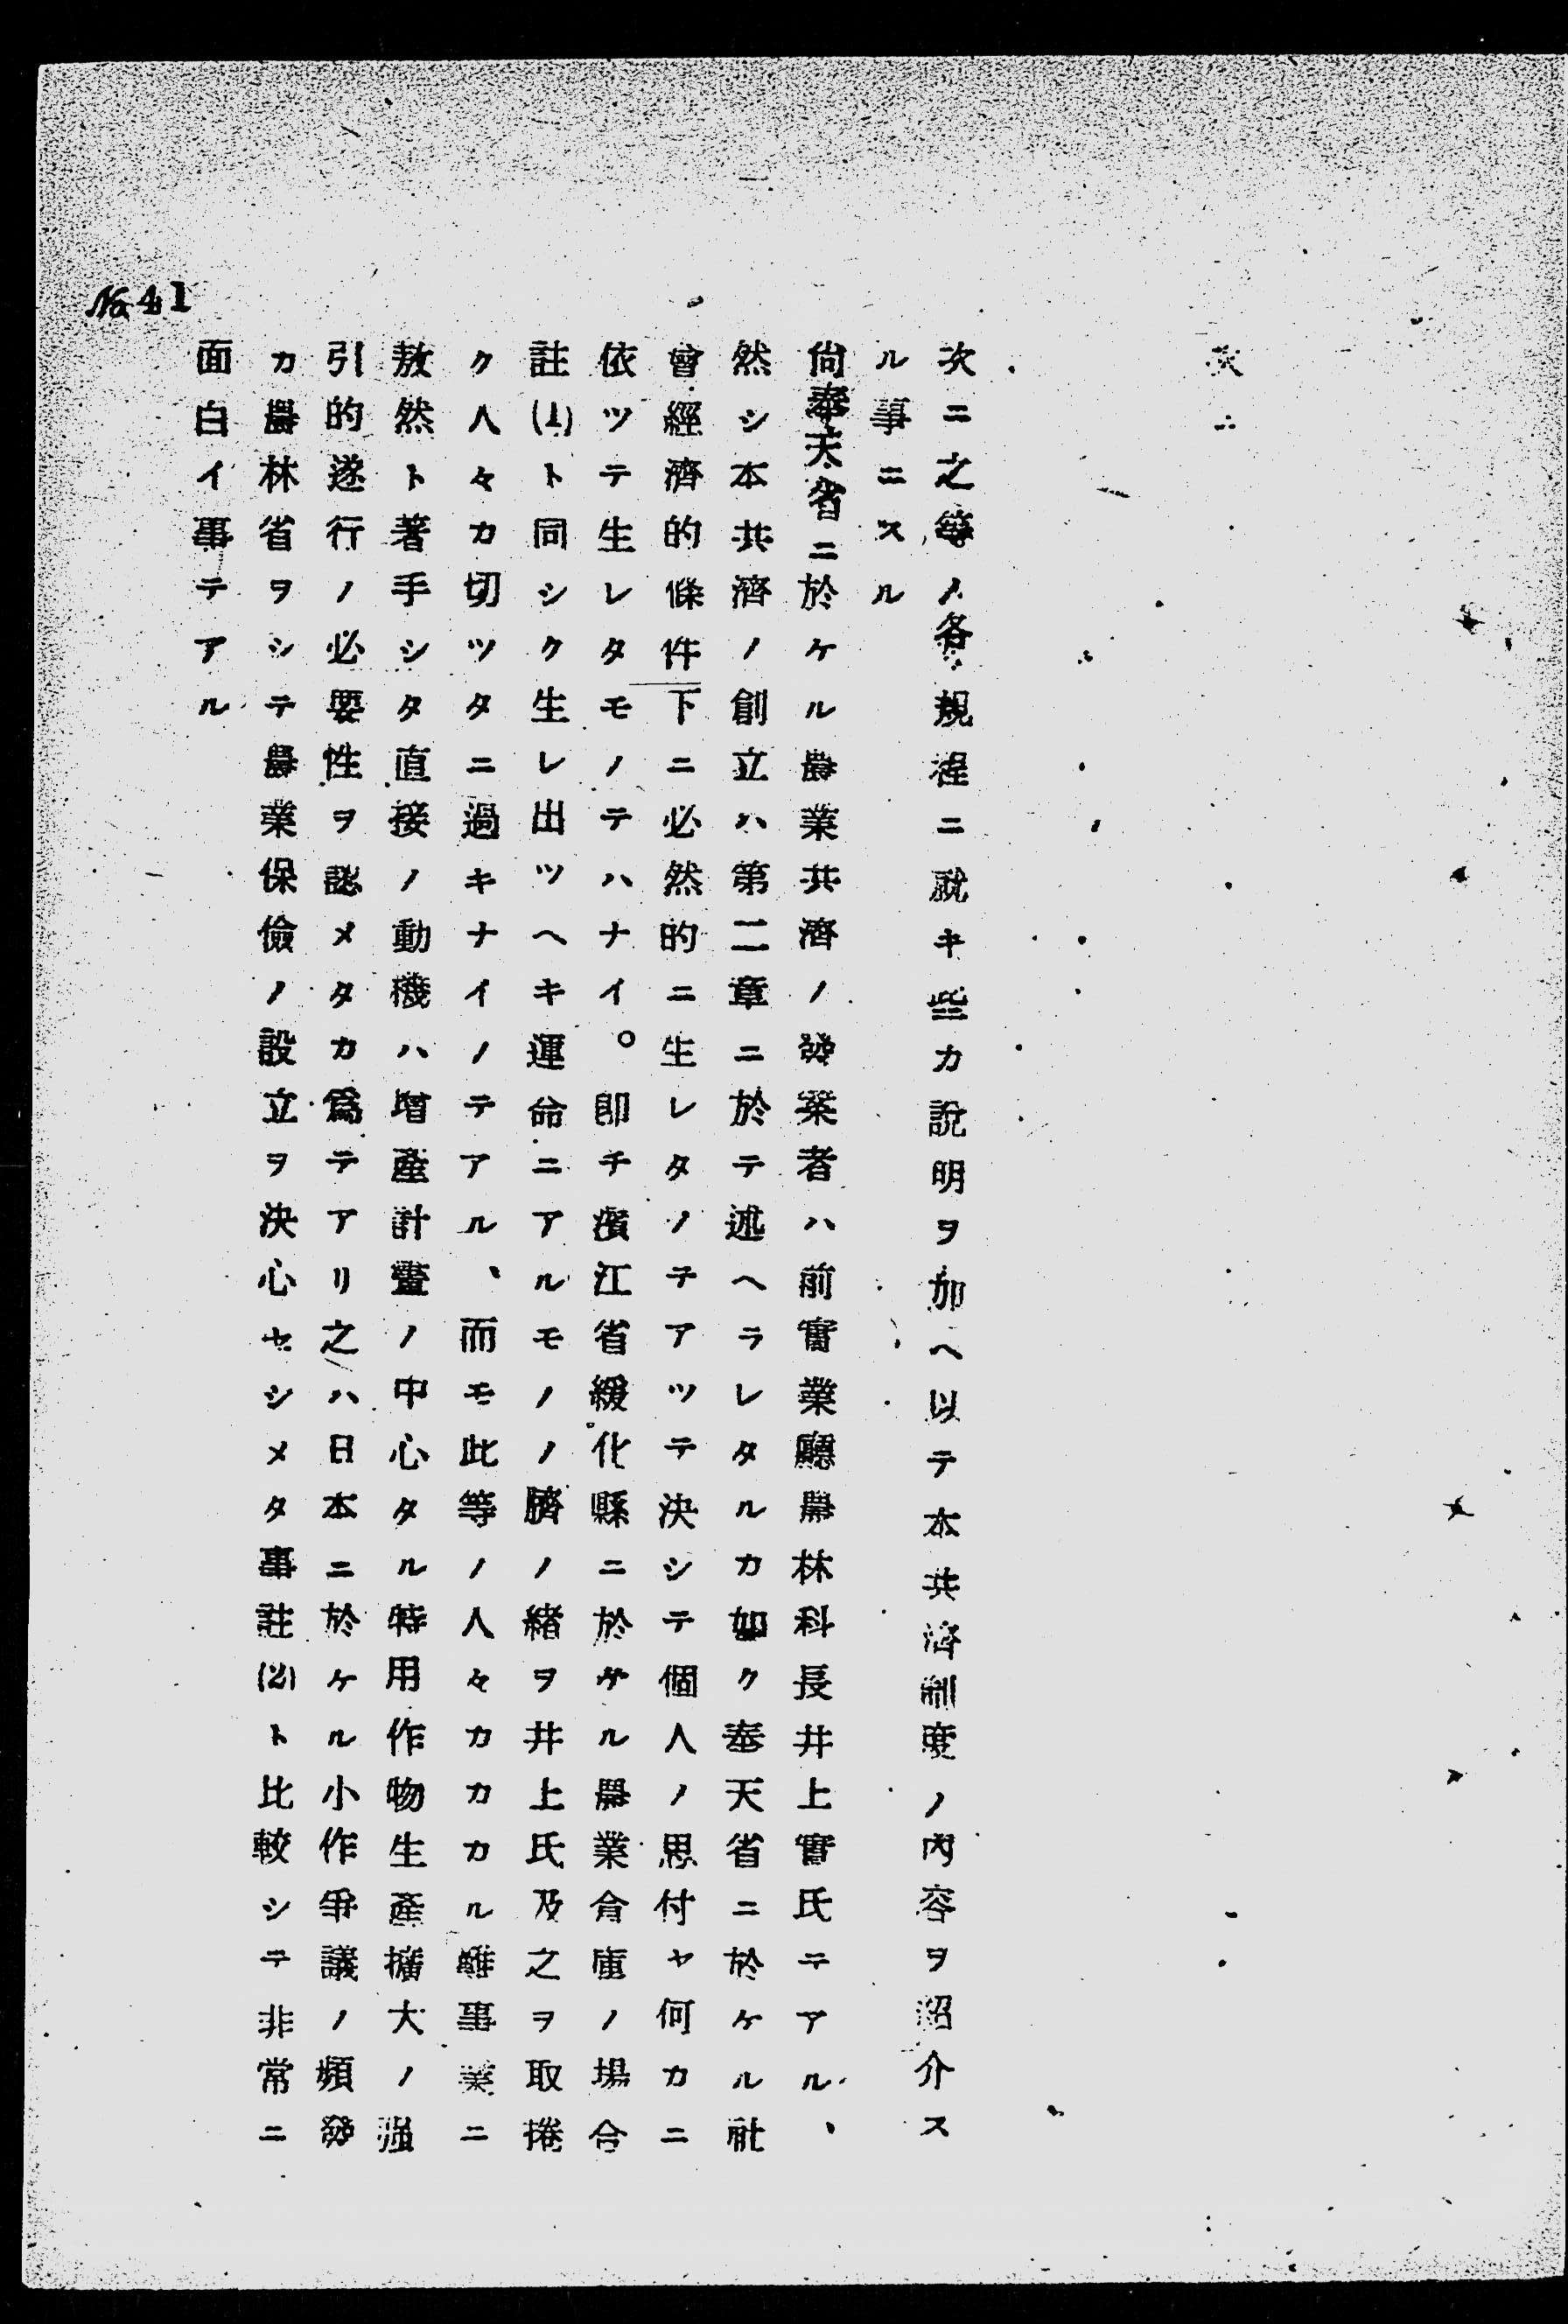 次ニ
次ニ之等ノ各規程ニ就キ些カ説明ヲ加ヘ以テ本共濟制度ノ內容ヲ紹介ス
ル事ニスル
尙奉天省ニ於ケル農業共濟ノ發案者ハ前實業廳農林科長井上實氏テアル、
然シ本共濟ノ創立ハ第二章ニ於テ述ヘラレタルカ如ク奉天省ニ於ケル社
會經濟的條件下ニ必然的ニ生レタノテアツテ決シテ個人ノ思付ヤ何カニ
依ツテ生レタモノテハナイ。卽チ濱江省綏化縣ニ於ケル農業倉庫ノ場合
註(1)ト同シク生レ出ツヘキ運命ニアルモノノ臍ノ緖ヲ井上氏及之ヲ取捲
ク人々カ切ツタニ過キナイノテアル、而モ此等ノ人々カカカル難事業ニ
敖然ト著手シタ直接ノ動機ハ增產計畫ノ中心タル特用作物生產擴大ノ强
引的遂行ノ必要性ヲ認メタカ爲テアリ之ハ日本ニ於ケル小作爭議ノ頻發
カ農林省ヲシテ農業保儉ノ設立ヲ決心セシメタ事註(2)ト比較シテ非常ニ
面白イ事テアル
№41